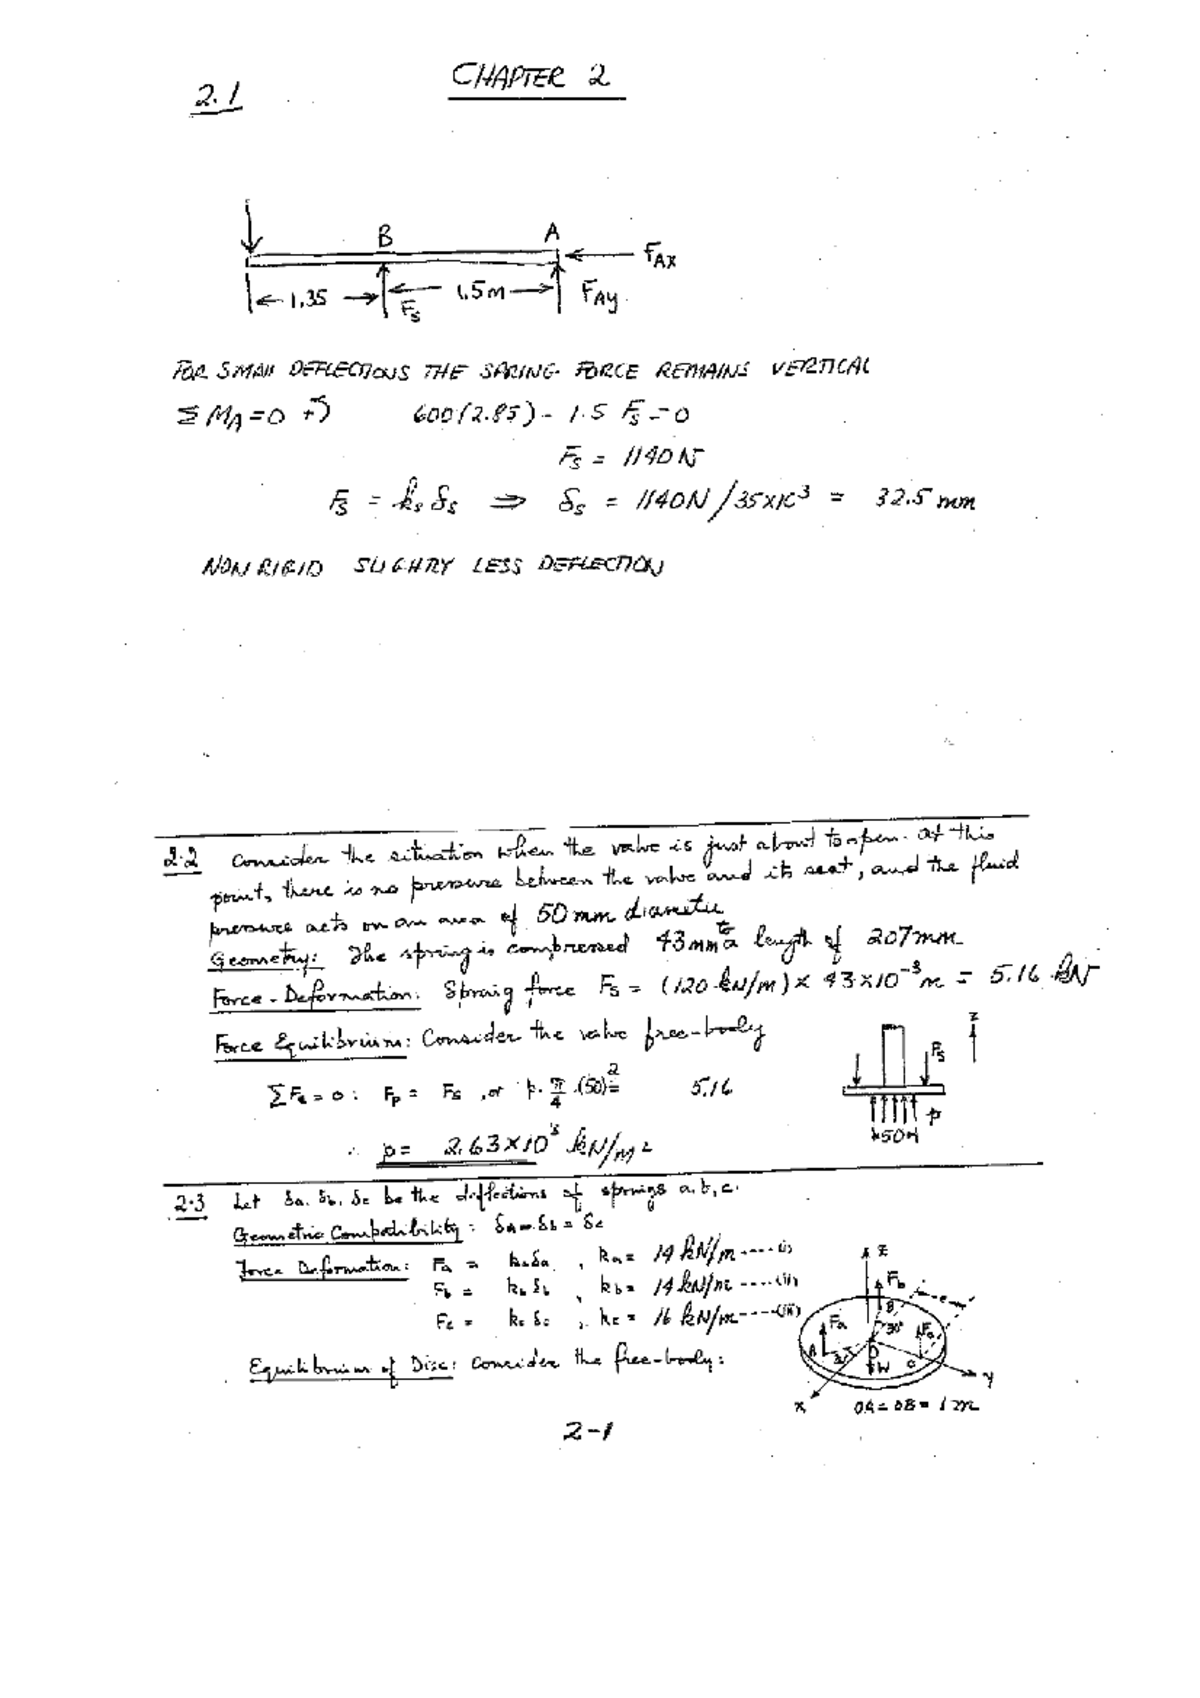 CHAPTER 2
2.1
B A
FAx
1.35 Fs 1.5m FAy
FOR SMALL DEFLECTIONS THE SPRING FORCE REMAINS VERTICAL
ΣMA=0 + 600(2.85) - 1.5 Fs = 0
Fs = 1140 N
Fs = ks δs ⇒ δs = 1140N/35x10³ = 32.5 mm
NON RIGID SLIGHTLY LESS DEFLECTION
2.2 Consider the situation when the valve is just about to open. At this
point, there is no pressure between the valve and its seat, and the fluid
pressure acts on an area of 50 mm diameter
Geometry: The spring is compressed 43mm to a length of 207mm
Force-Deformation: Spring force Fs = (120 kN/m) x 43x10⁻³m = 5.16 kN
Force Equilibrium: Consider the valve free-body
z
Fs
ΣFz = 0: Fp = Fs, or p. π/4 .(50)² = 5.16
p
50
∴ p = 2.63x10³ kN/m²
2.3 Let δa, δb, δc be the deflections of springs a, b, c.
Geometric Compatibility: δa = δb = δc
Force Deformation: Fa = kaδa, ka = 14 kN/m ----(i)
Fb = kb δb, kb = 14 kN/m ----(ii)
Fc = kc δc, kc = 16 kN/m ----(iii)
Equilibrium of Disc: Consider the free-body:
z
Fb
B
Fa 30°
A O C
W
y
x OA = OB = 1m
2-1